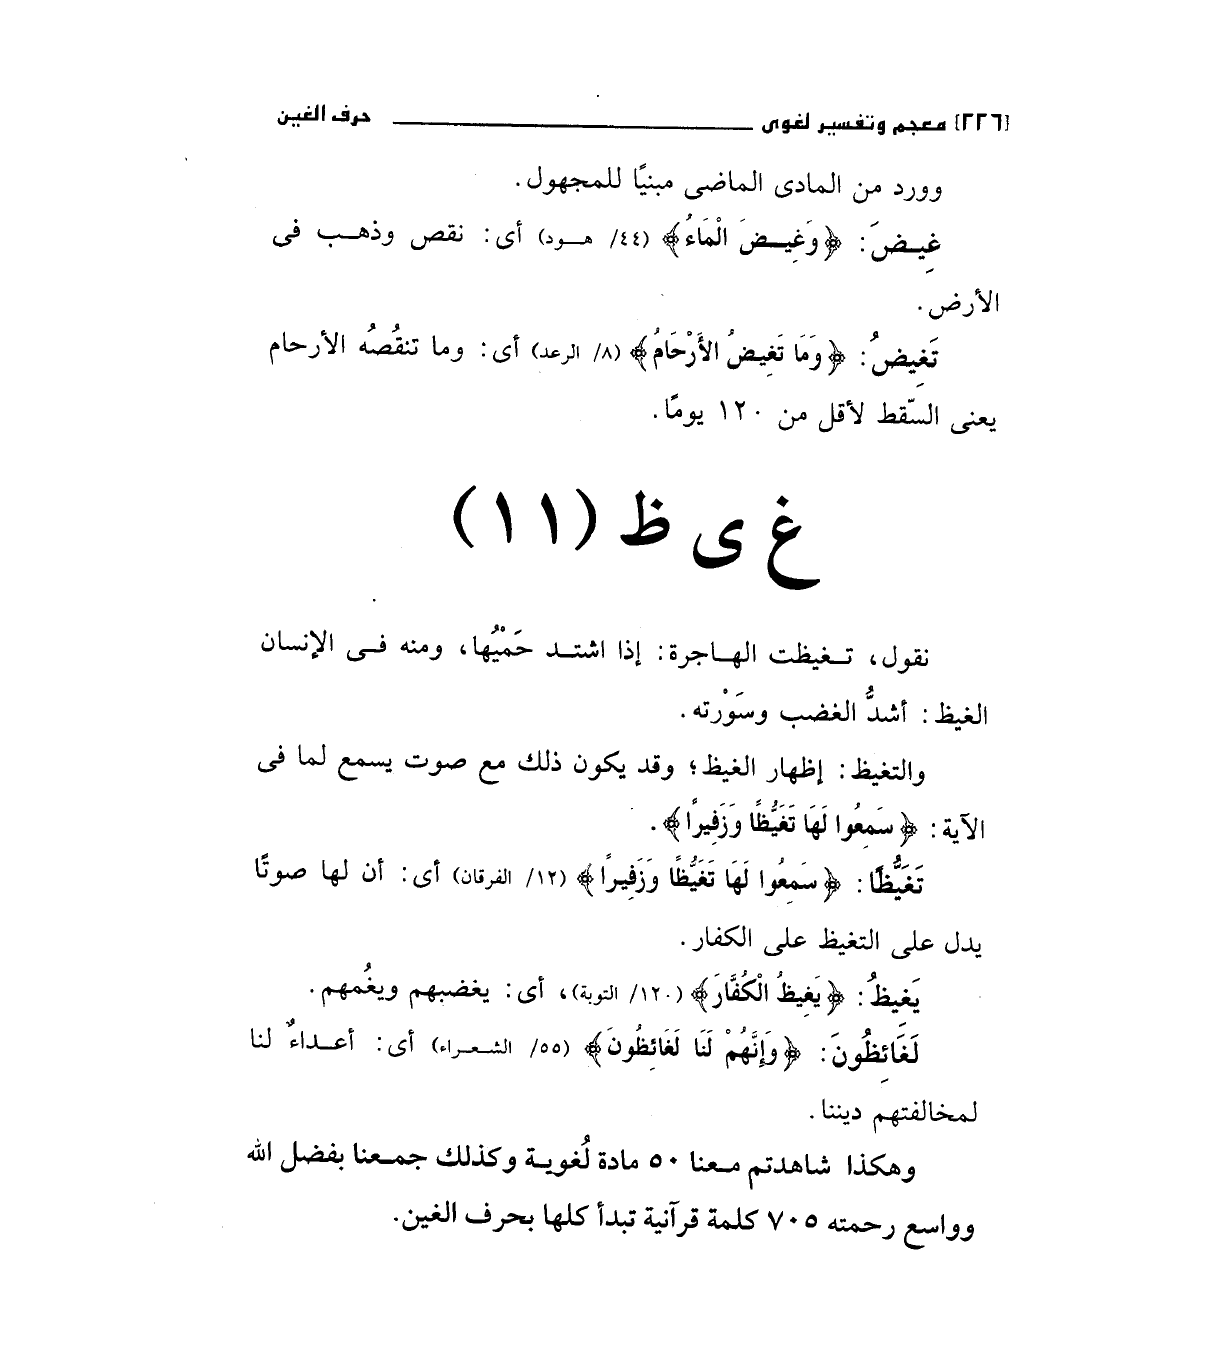 [٢٢٦] معجم وتفسير لغوى ــــــــــ حرف الغين
وورد من المادى الماضى مبنيًا للمجهول.
غِيضَ: ﴿وَغِيضَ الْمَاءُ﴾ (٤٤/ هود) أى: نقص وذهب فى
الأرض.
تَغِيضُ: ﴿وَمَا تَغِيضُ الأَرْحَامُ﴾ (٨/ الرعد) أى: وما تنقُصُه الأرحام
يعنى السّقط لأقل من ١٢٠ يومًا.
غ ى ظ (١١)
نقول، تغيظت الهاجرة: إذا اشتد حَمْيُها، ومنه فى الإنسان
الغيظ: أشدُّ الغضب وسَوْرته.
والتغيظ: إظهار الغيظ؛ وقد يكون ذلك مع صوت يسمع لما فى
الآية: ﴿سَمِعُوا لَهَا تَغَيُّظًا وَزَفِيرًا﴾.
تَغَيُّظًا: ﴿سَمِعُوا لَهَا تَغَيُّظًا وَزَفِيرًا﴾ (١٢/ الفرقان) أى: أن لها صوتًا
يدل على التغيظ على الكفار.
يَغِيظُ: ﴿يَغِيظُ الْكُفَّارَ﴾ (١٢٠/ التوبة)، أى: يغضبهم ويغُمهم.
لَغَائِظُونَ: ﴿وَإِنَّهُمْ لَنَا لَغَائِظُونَ﴾ (٥٥/ الشعراء) أى: أعداءٌ لنا
لمخالفتهم ديننا.
وهكذا شاهدتم معنا ٥٠ مادة لُغوية وكذلك جمعنا بفضل الله
وواسع رحمته ٧٠٥ كلمة قرآنية تبدأ كلها بحرف الغين.